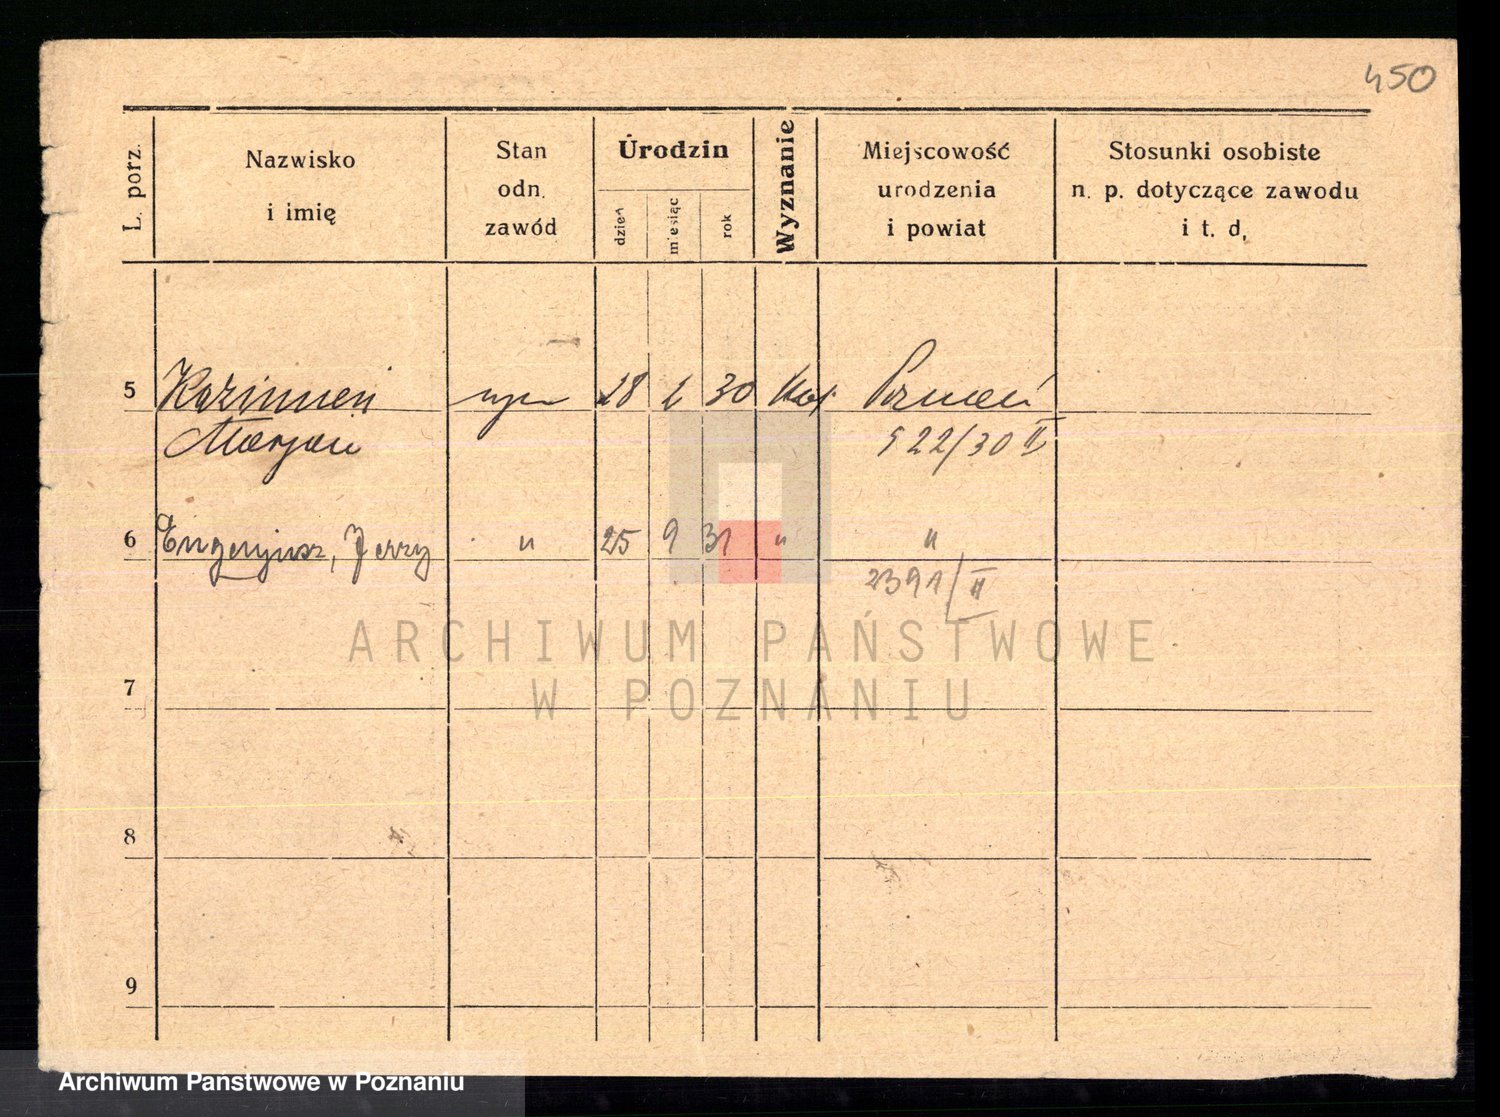 450
L. porz.
Nazwisko
i imię
Stan
odn.
zawód
Urodzin
dzień
miesiąc
rok
Wyznanie
Miejscowość
urodzenia
i powiat
Stosunki osobiste
n. p. dotyczące zawodu
i t. d,
5 Kazimierz syn 28 2 30 Kat. Poznań
Marjan 522/30 II
6 Eugenjusz, Jerzy " 25 9 31 " "
2391/II
ARCHIWUM PAŃSTWOWE
W POZNANIU
7
8
9
Archiwum Państwowe w Poznaniu